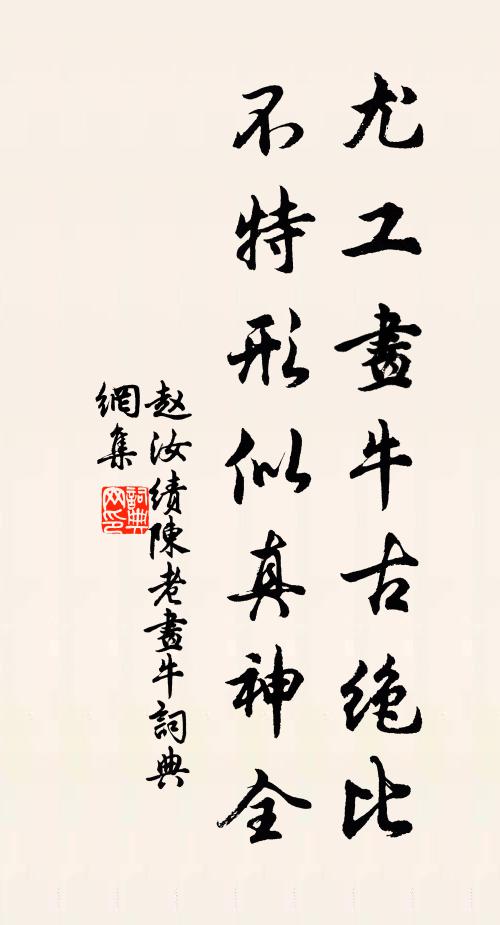 尤工畫牛古绝比
不特形似真神全
赵汝績陳老畫牛詞典
網集
詞典网印